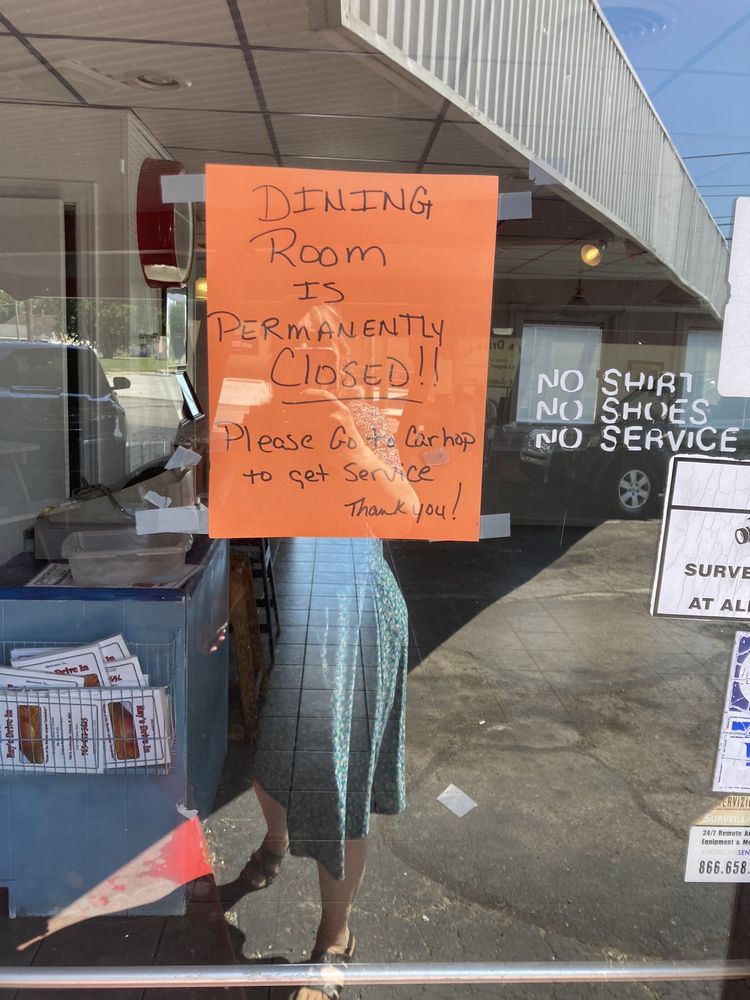 DINING
Room
IS
PERMANENTLY
CLOSED!!
Please Go to Carhop
to get Service
Thank you!
NO SHIRT
NO SHOES
NO SERVICE
SURVE
AT AL
24/7 Remote
Equipment &
866.658.
Drive In
Drive In